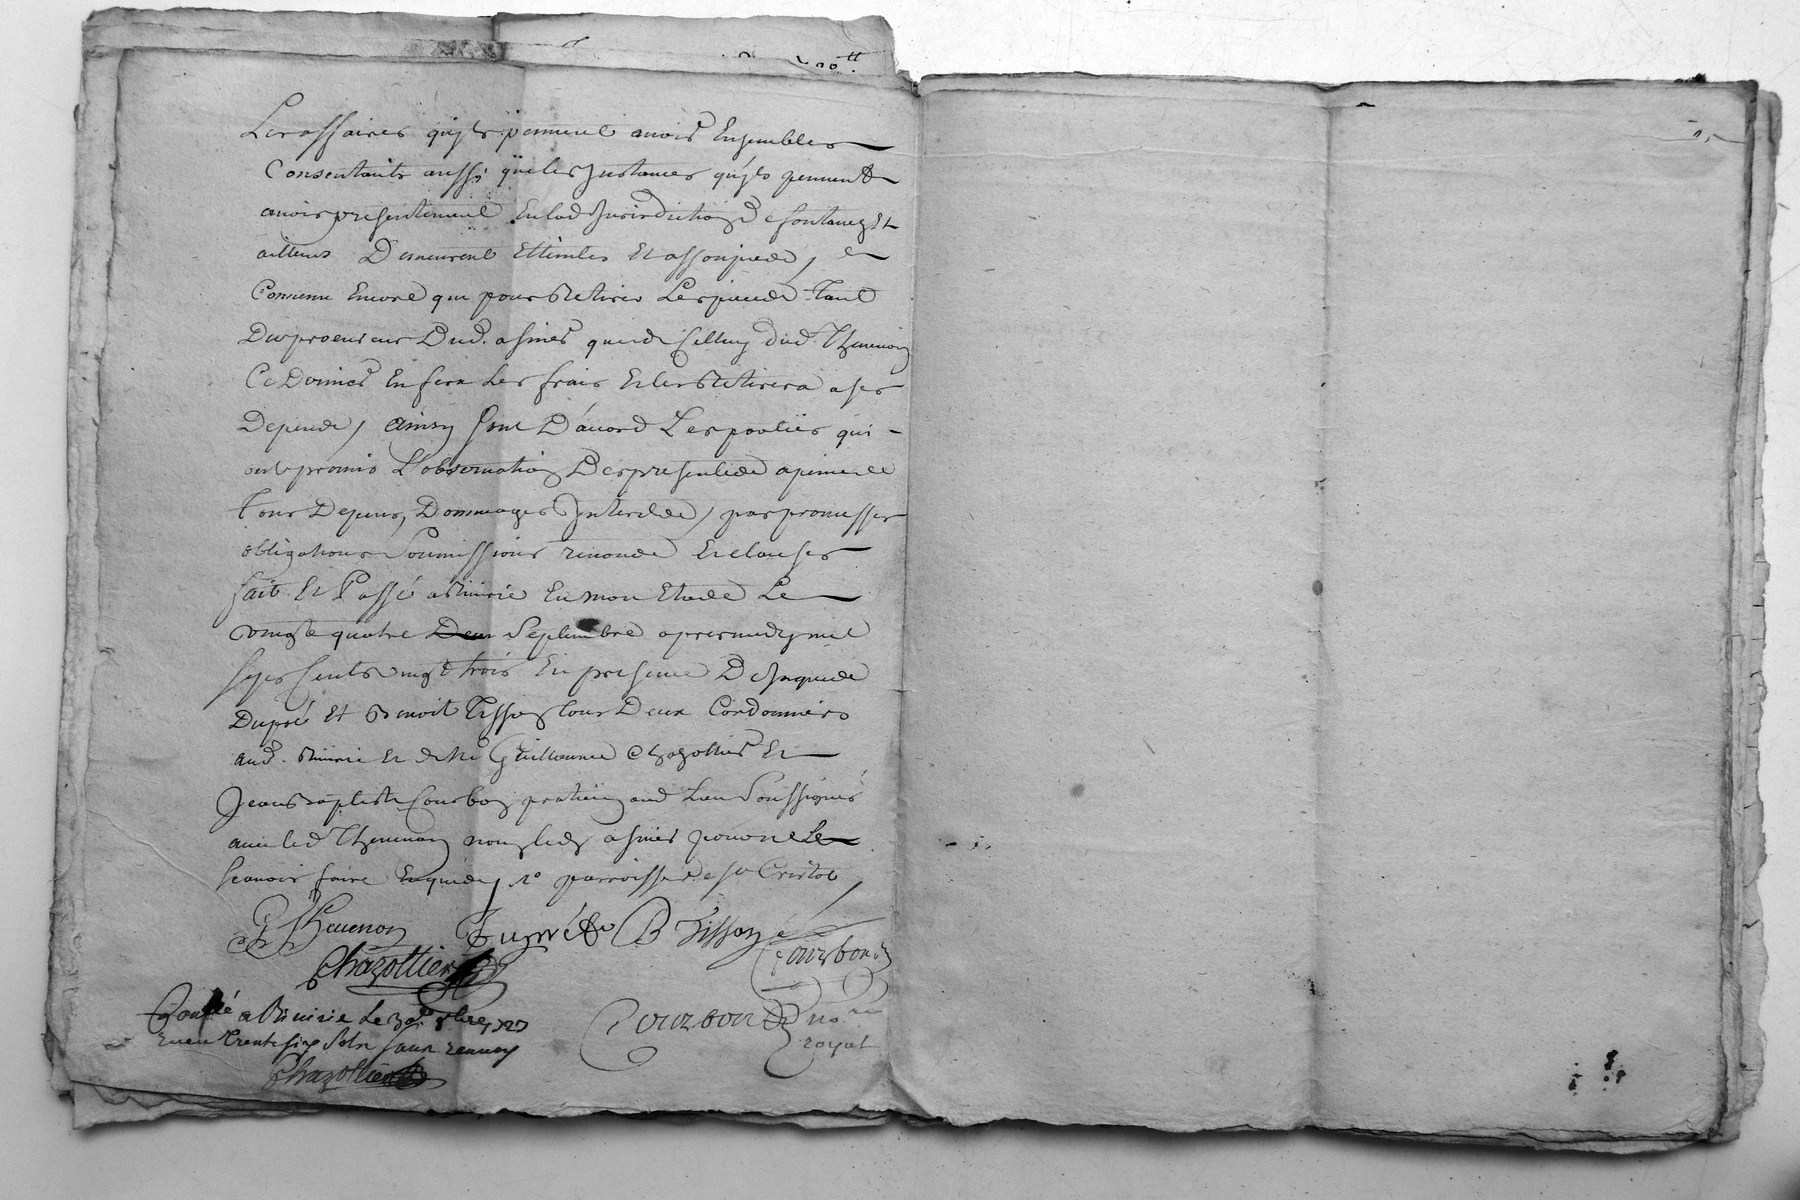 Les affaires qu'jls peuvent avoir Ensembles
Consentants aussi que les Jnstances qu'jls peuvent
avoir presentement En lad Jurisdiction de fontanez Et
ailleurs Demeurent Etteintes Et assoupiede, et
Convenu Encore que pour Retirer Les pieces Tant
Du procureur Dud. asnier que de celluy dud Thevenon
Ce Dernier En fera Les frais Et les Retirera a ses
Depends, ainsy sont D'accord Les parties qui
ont promis L'observation Des presentes a peine de
Tous Depens, Dommages Jnterests, par promesses
obligations Soumissions renonce Et clauses
fait Et Passé a St En mon Etude Le
vingt quatre Septembre apres midy mil
sept cents vingt trois En presence De Jacques
Dupré Et Benoit Tisson tous Deux Cordonniers
aud. Et de Me Guillaume Chazottier Et
Jean Baptiste Courbon praticien aud Lieu Soussignés
avec led Thevenon non led asnier pour ne Le
scavoir faire Enquis, paroisse de St Cristot
Thevenon Dupré B Tisson
Chazottier Courbon
Controllé a Le
Receu Trente six Sols
Chazottier
Courbon no.re
royal